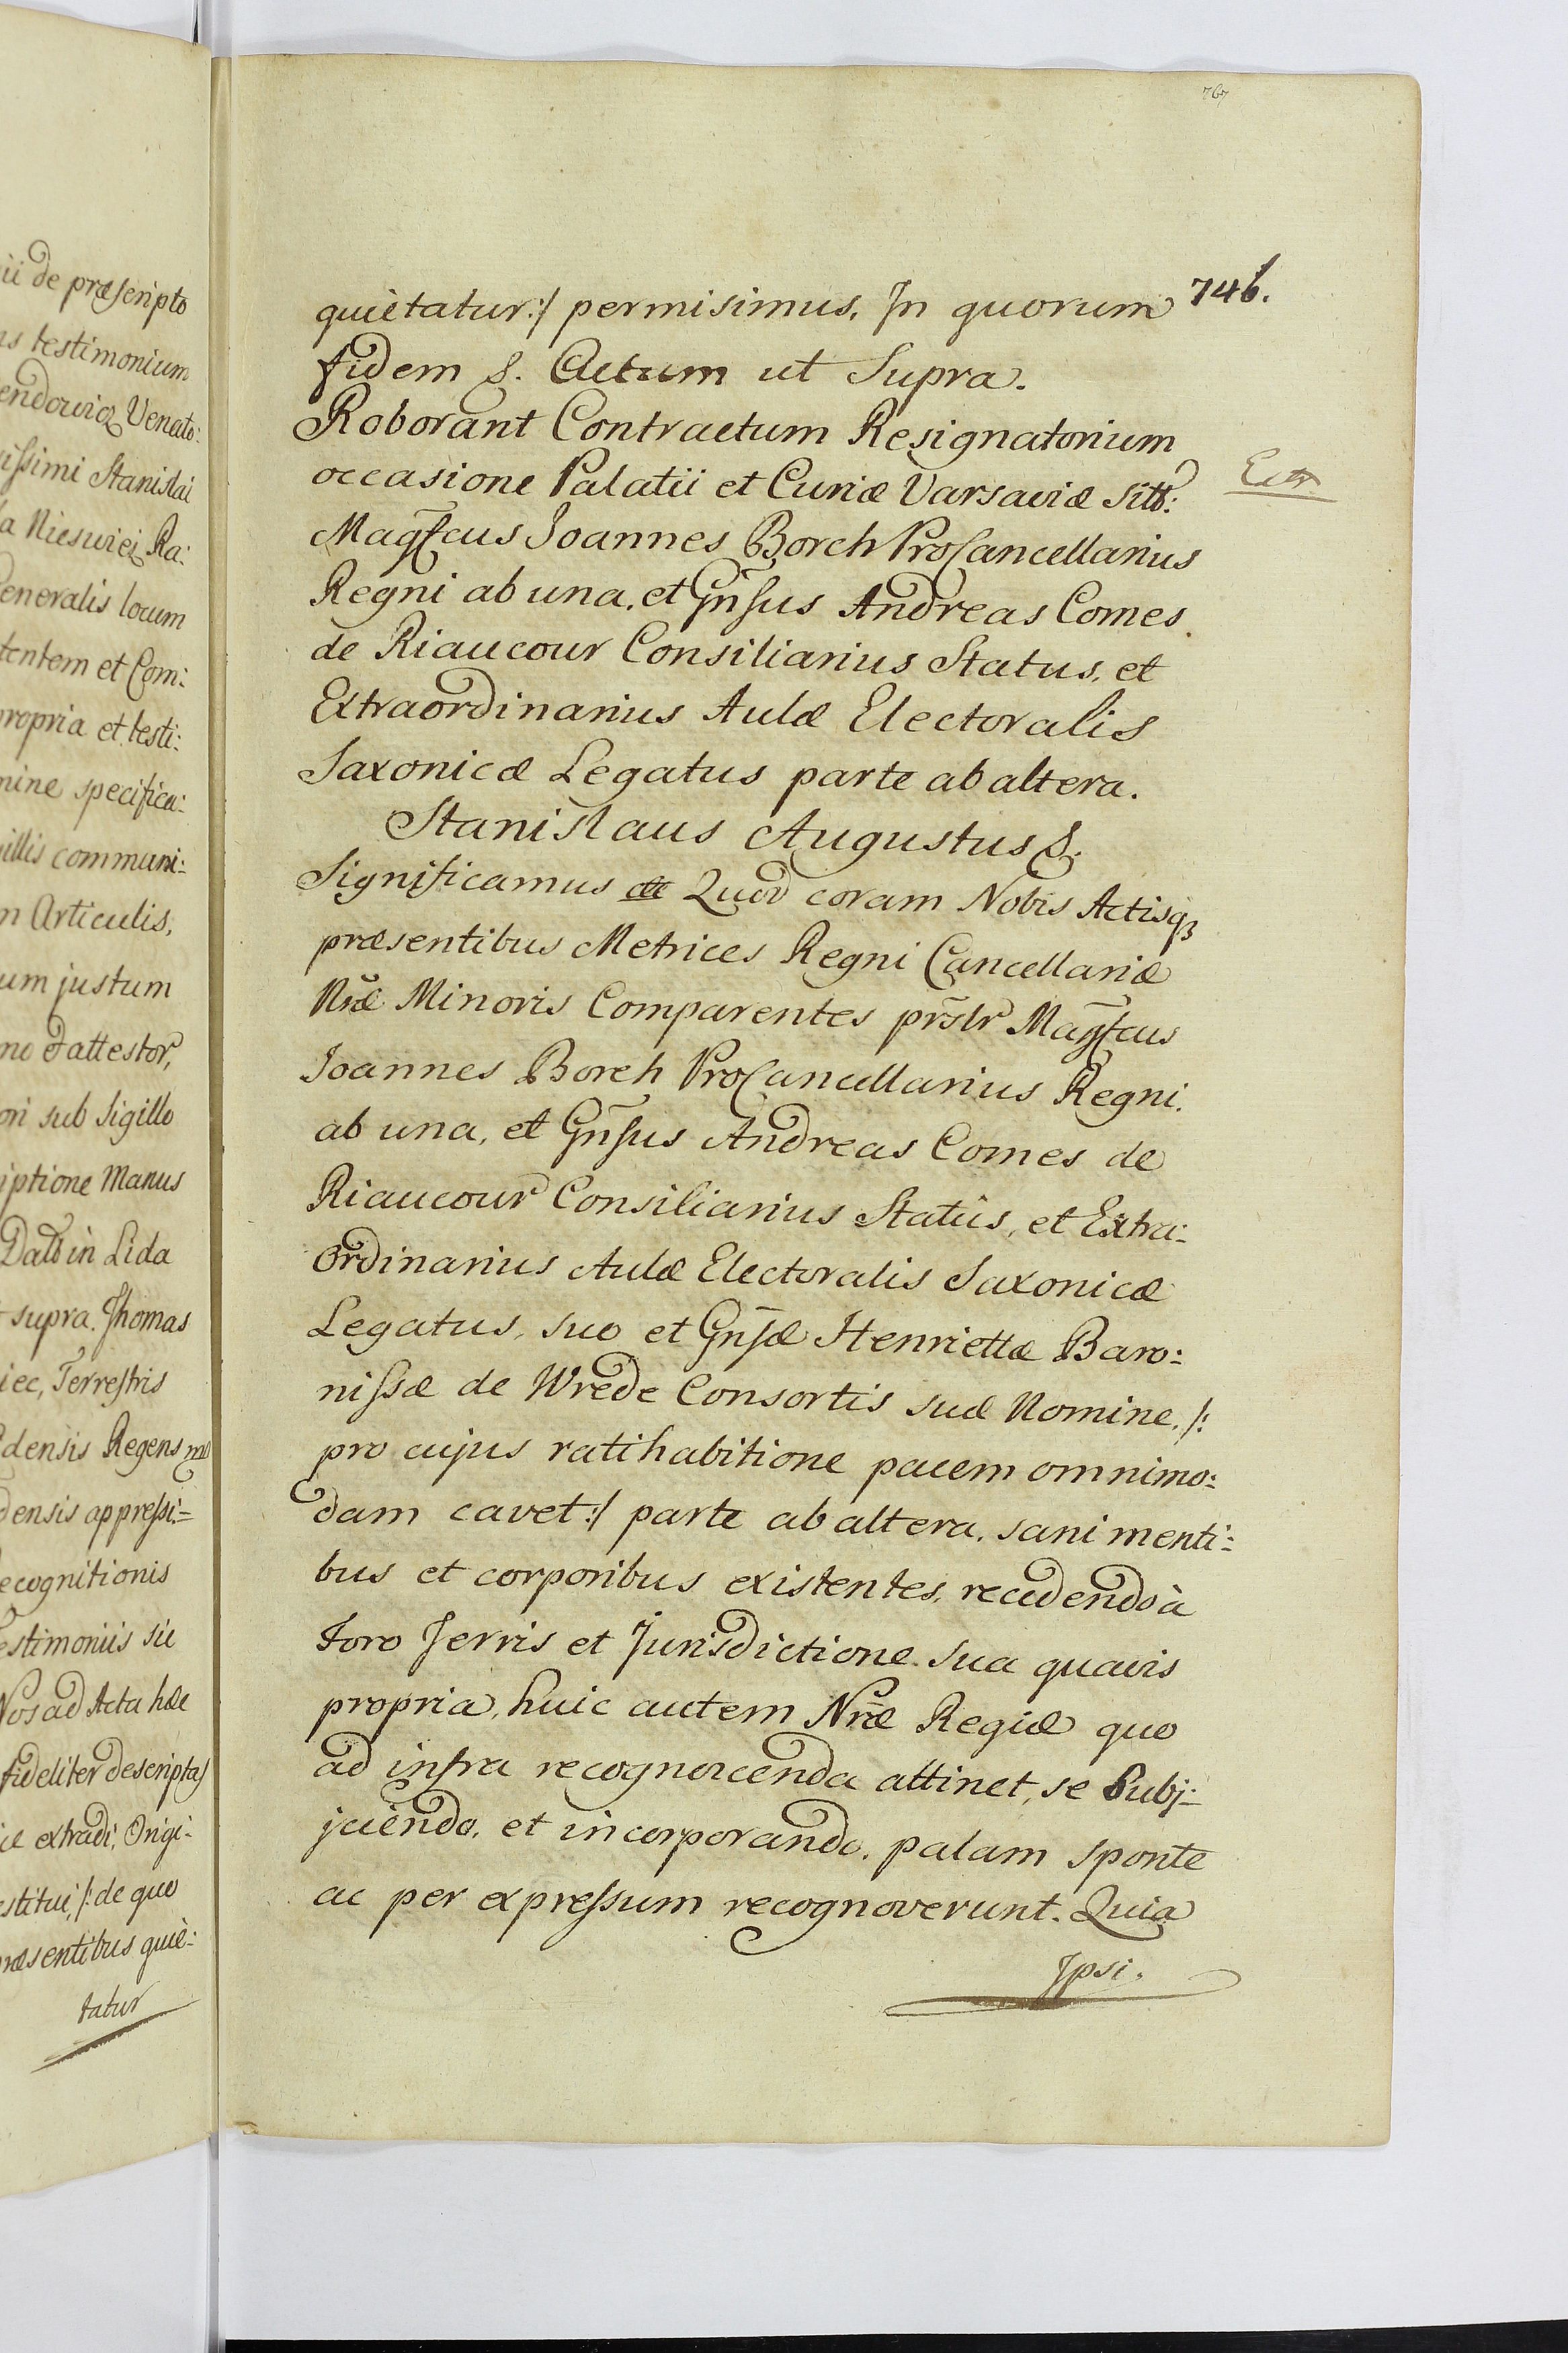 767
746.
quietatur:/ permisimus. In quorum
fidem &. Actum ut Supra.
Roborant Contractum Resignatorium
occasione Palatii et Curiæ Varsaviæ sitt:
Magfcus Joannes Borch ProCancellarius
Regni ab una, et Gnsus Andreas Comes
de Riaucour Consiliarius Status, et
Extraordinarius Aulæ Electoralis
Saxonicæ Legatus parte ab altera.
Stanislaus Augustus &.
Significamus Quod coram Nobis Actisq3
præsentibus Metrices Regni Cancellariæ
Nræ Minoris Comparentes prslr Magfcus
Joannes Borch ProCancellarius Regni.
ab una, et Gnsus Andreas Comes de
Riaucour Consiliarius Statûs, et Extra:
Ordinarius Aulæ Electoralis Saxonicæ
Legatus, suo et Gnsæ Henriettæ Baro:
nissæ de Wrede Consortis suæ Nomine. /:
pro cujus ratihabitione pacem omnimo:
dam cavet:/ parte ab altera. sani menti:
bus et corporibus existentes, recedendo à
Foro Terris et Jurisdictione sua quavis
propria, huic autem Nræ Regiæ quo
ad infra recognorcenda attinet, se Subj:
jciendo, et incorporando. palam sponte
ac per expressum recognoverunt. Quia
Ipsi.
ii de præscripto
testimonium
endowicz Venato:
issimi Stanislai
a Niesuiei Ra:
eneralis locum
tentem et Com:
propria et testi:
mine specifica:
illis communi:
n Articulis,
um justum
attestor,
ori sub Sigillo
iptione Manus
Datt in Lida
supra. Thomas
iec, Terrestris
densis Regens mp
densis appressi:
ecognitionis
estimoniis sic
Nos ad Acta hæc
fideliter descriptas
extradi, Origi:
estitui, /: de quo
ræsentibus quiè:
tatur